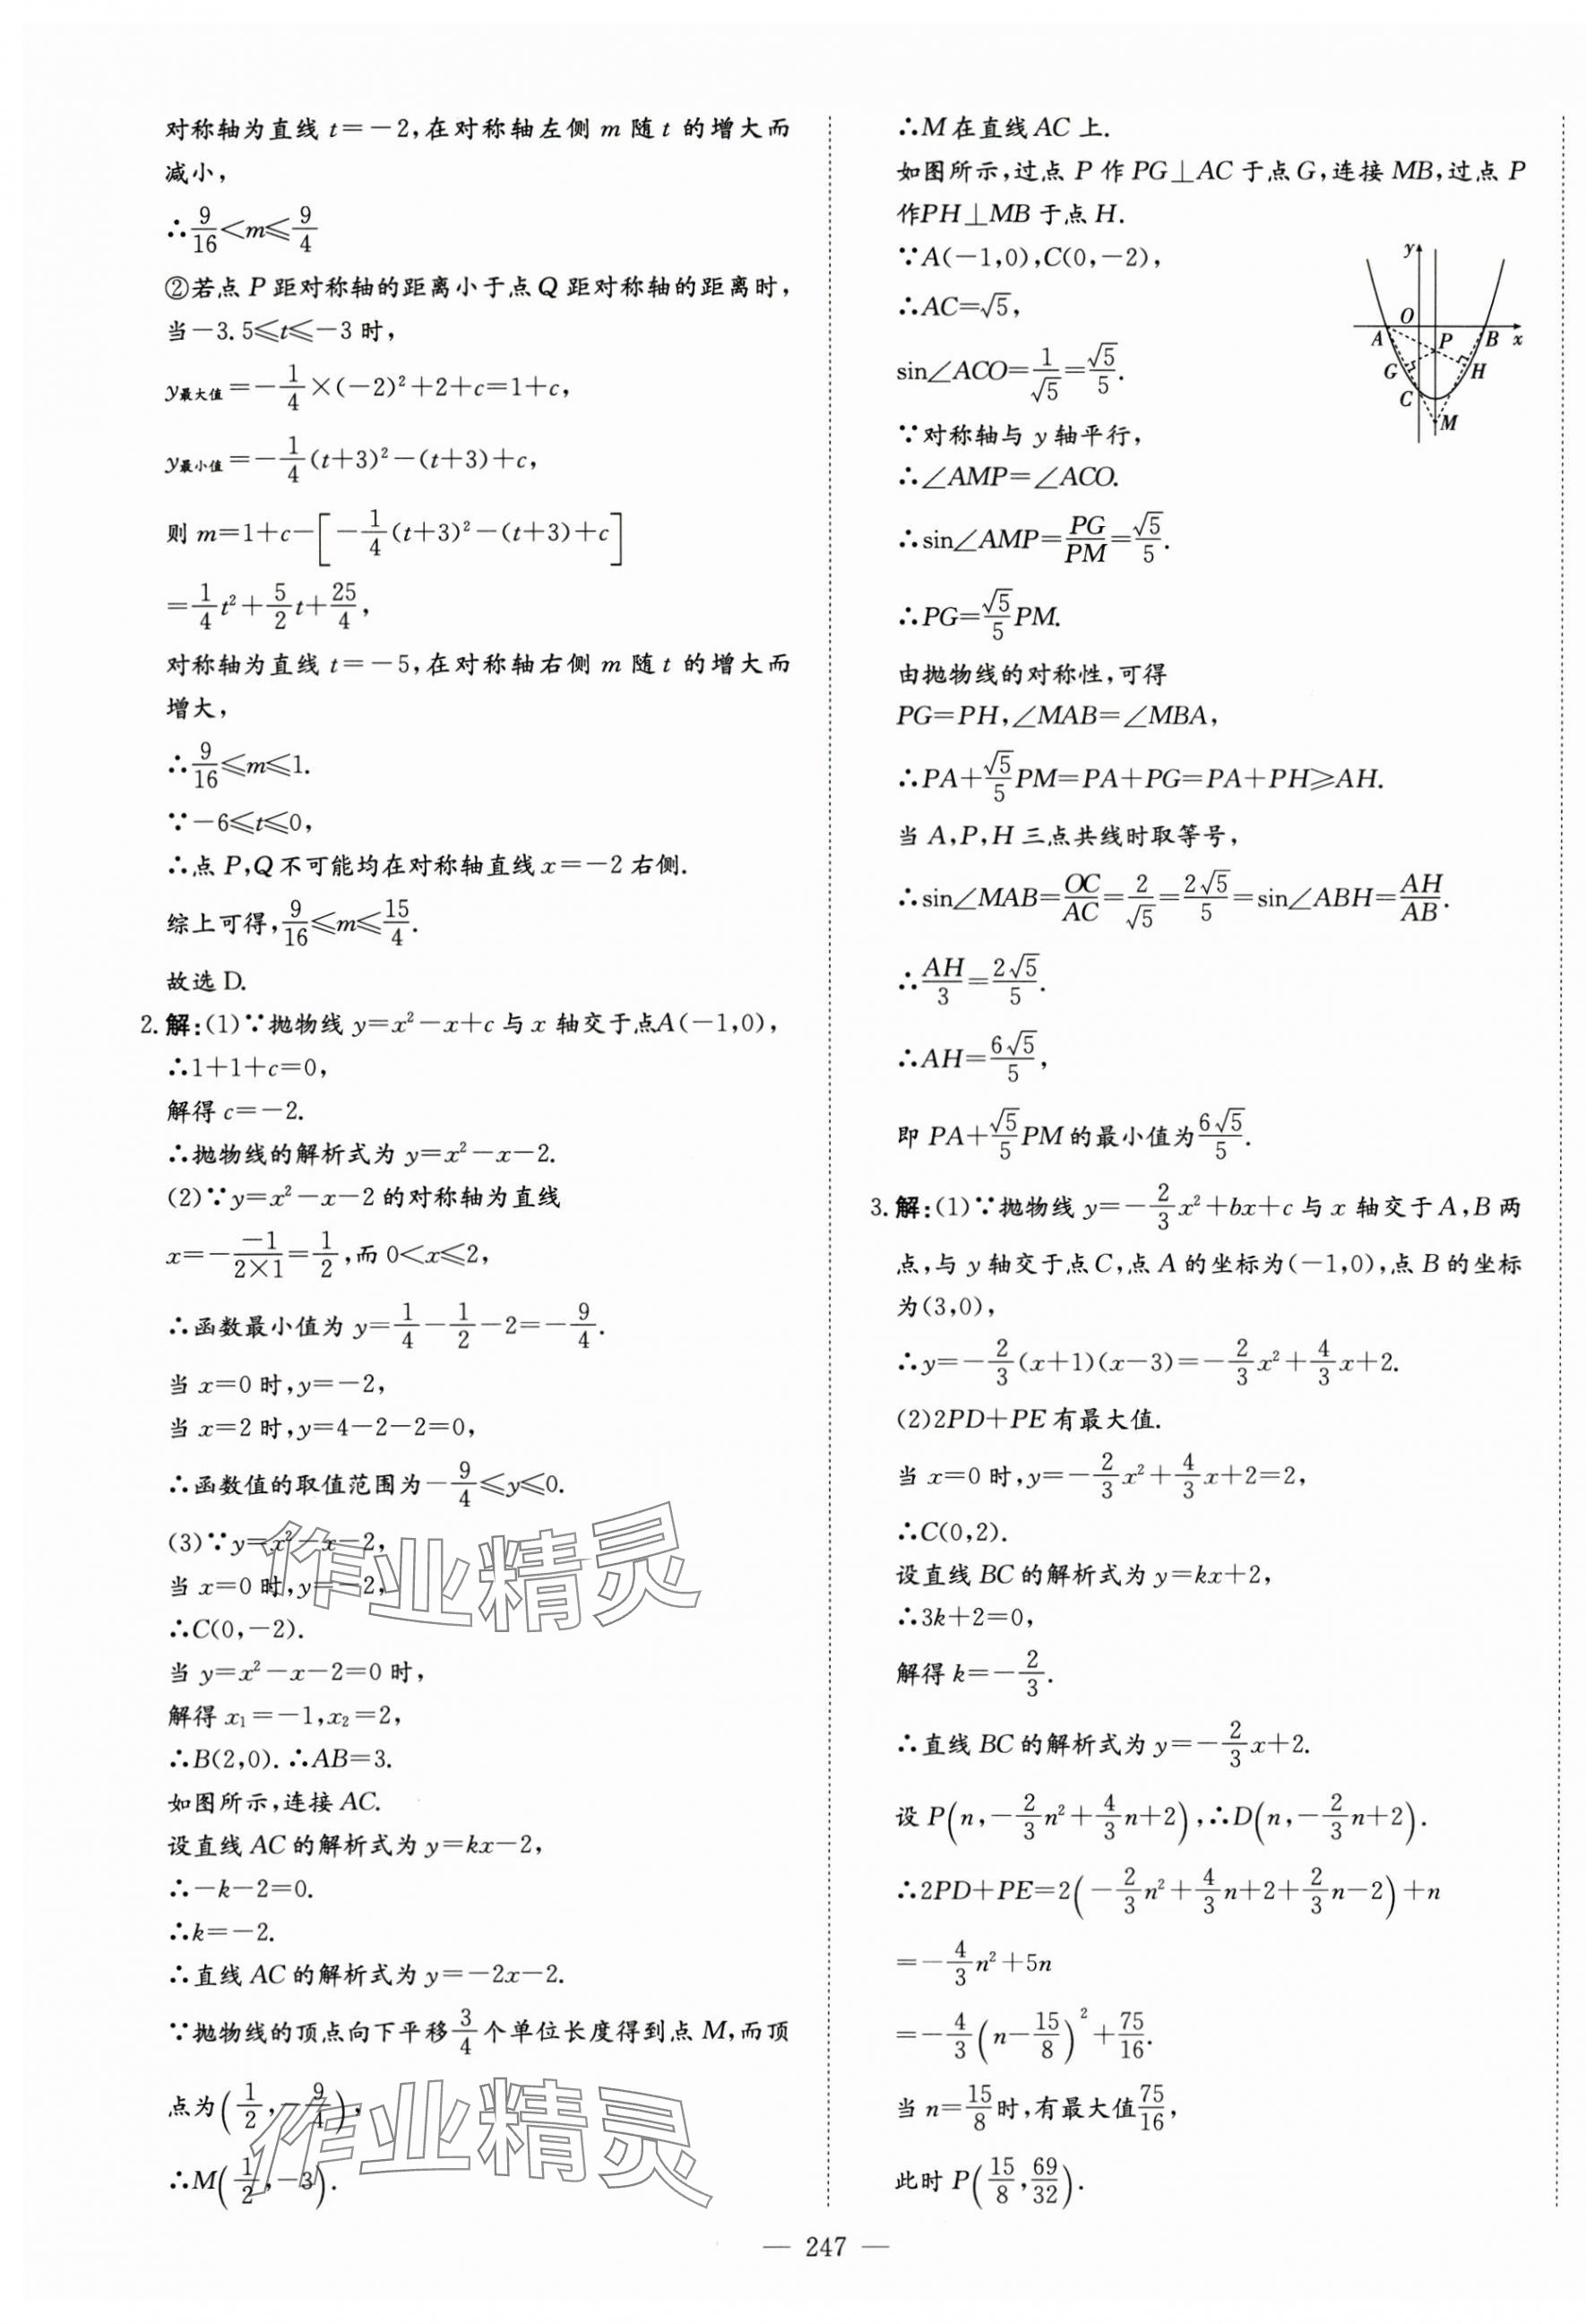 对称轴为直线 t=-2,在对称轴左侧 m 随 t 的增大而
减小,
∴9/16<m≤9/4
②若点 P 距对称轴的距离小于点 Q 距对称轴的距离时,
当-3.5≤t≤-3 时,
y最大值=-1/4×(-2)²+2+c=1+c,
y最小值=-1/4(t+3)²-(t+3)+c,
则 m=1+c-[-1/4(t+3)²-(t+3)+c]
=1/4t²+5/2t+25/4,
对称轴为直线 t=-5,在对称轴右侧 m 随 t 的增大而
增大,
∴9/16≤m≤1.
∵-6≤t≤0,
∴点 P,Q 不可能均在对称轴直线 x=-2 右侧.
综上可得,9/16≤m≤15/4.
故选 D.
2. 解:(1)∵抛物线 y=x²-x+c 与 x 轴交于点A(-1,0),
∴1+1+c=0,
解得 c=-2.
∴抛物线的解析式为 y=x²-x-2.
(2)∵y=x²-x-2 的对称轴为直线
x=-(-1)/(2×1)=1/2,而 0<x≤2,
∴函数最小值为 y=1/4-1/2-2=-9/4.
当 x=0 时,y=-2,
当 x=2 时,y=4-2-2=0,
∴函数值的取值范围为-9/4≤y≤0.
(3)∵y=x²-x-2,
当 x=0 时,y=-2,
∴C(0,-2).
当 y=x²-x-2=0 时,
解得 x₁=-1,x₂=2,
∴B(2,0).∴AB=3.
如图所示,连接 AC.
设直线 AC 的解析式为 y=kx-2,
∴-k-2=0.
∴k=-2.
∴直线 AC 的解析式为 y=-2x-2.
∵抛物线的顶点向下平移3/4个单位长度得到点 M,而顶
点为(1/2,-9/4),
∴M(1/2,-3).
作业精灵
作业精灵
∴M 在直线 AC 上.
如图所示,过点 P 作 PG⊥AC 于点 G,连接 MB,过点 P
作PH⊥MB 于点 H.
∵A(-1,0),C(0,-2),
∴AC=√5,
sin∠ACO=1/√5=√5/5.
∵对称轴与 y 轴平行,
∴∠AMP=∠ACO.
∴sin∠AMP=PG/PM=√5/5.
∴PG=√5/5PM.
由抛物线的对称性,可得
PG=PH,∠MAB=∠MBA,
∴PA+√5/5PM=PA+PG=PA+PH≥AH.
当 A,P,H 三点共线时取等号,
∴sin∠MAB=OC/AC=2/√5=2√5/5=sin∠ABH=AH/AB.
∴AH/3=2√5/5.
∴AH=6√5/5,
即 PA+√5/5PM 的最小值为6√5/5.
y
O
A
P
B
x
G
H
C
M
3. 解:(1)∵抛物线 y=-2/3x²+bx+c 与 x 轴交于 A,B 两
点,与 y 轴交于点 C,点 A 的坐标为(-1,0),点 B 的坐标
为(3,0),
∴y=-2/3(x+1)(x-3)=-2/3x²+4/3x+2.
(2)2PD+PE 有最大值.
当 x=0 时,y=-2/3x²+4/3x+2=2,
∴C(0,2).
设直线 BC 的解析式为 y=kx+2,
∴3k+2=0,
解得 k=-2/3.
∴直线 BC 的解析式为 y=-2/3x+2.
设 P(n,-2/3n²+4/3n+2),∴D(n,-2/3n+2).
∴2PD+PE=2(-2/3n²+4/3n+2+2/3n-2)+n
=-4/3n²+5n
=-4/3(n-15/8)²+75/16.
当 n=15/8时,有最大值75/16,
此时 P(15/8,69/32).
— 247 —